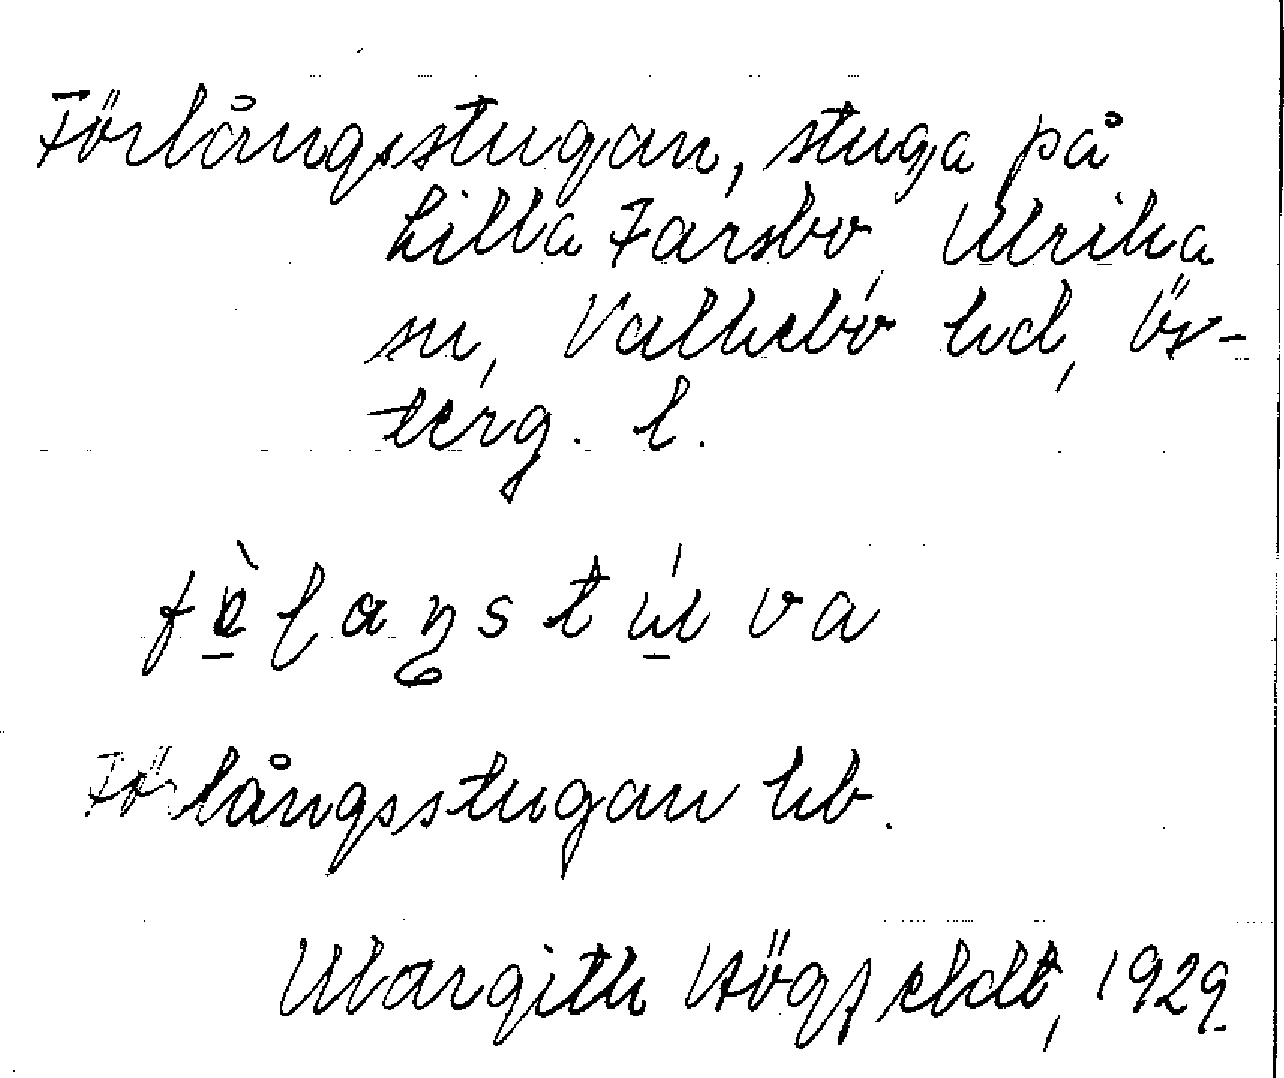 Förlångsstugan, stuga på
Lilla Farsbo, Ulrika
sn, Valkebo hd, Ös-
terg. l.
Förlångsstugan hb.
Margith Högfeldt, 1929.